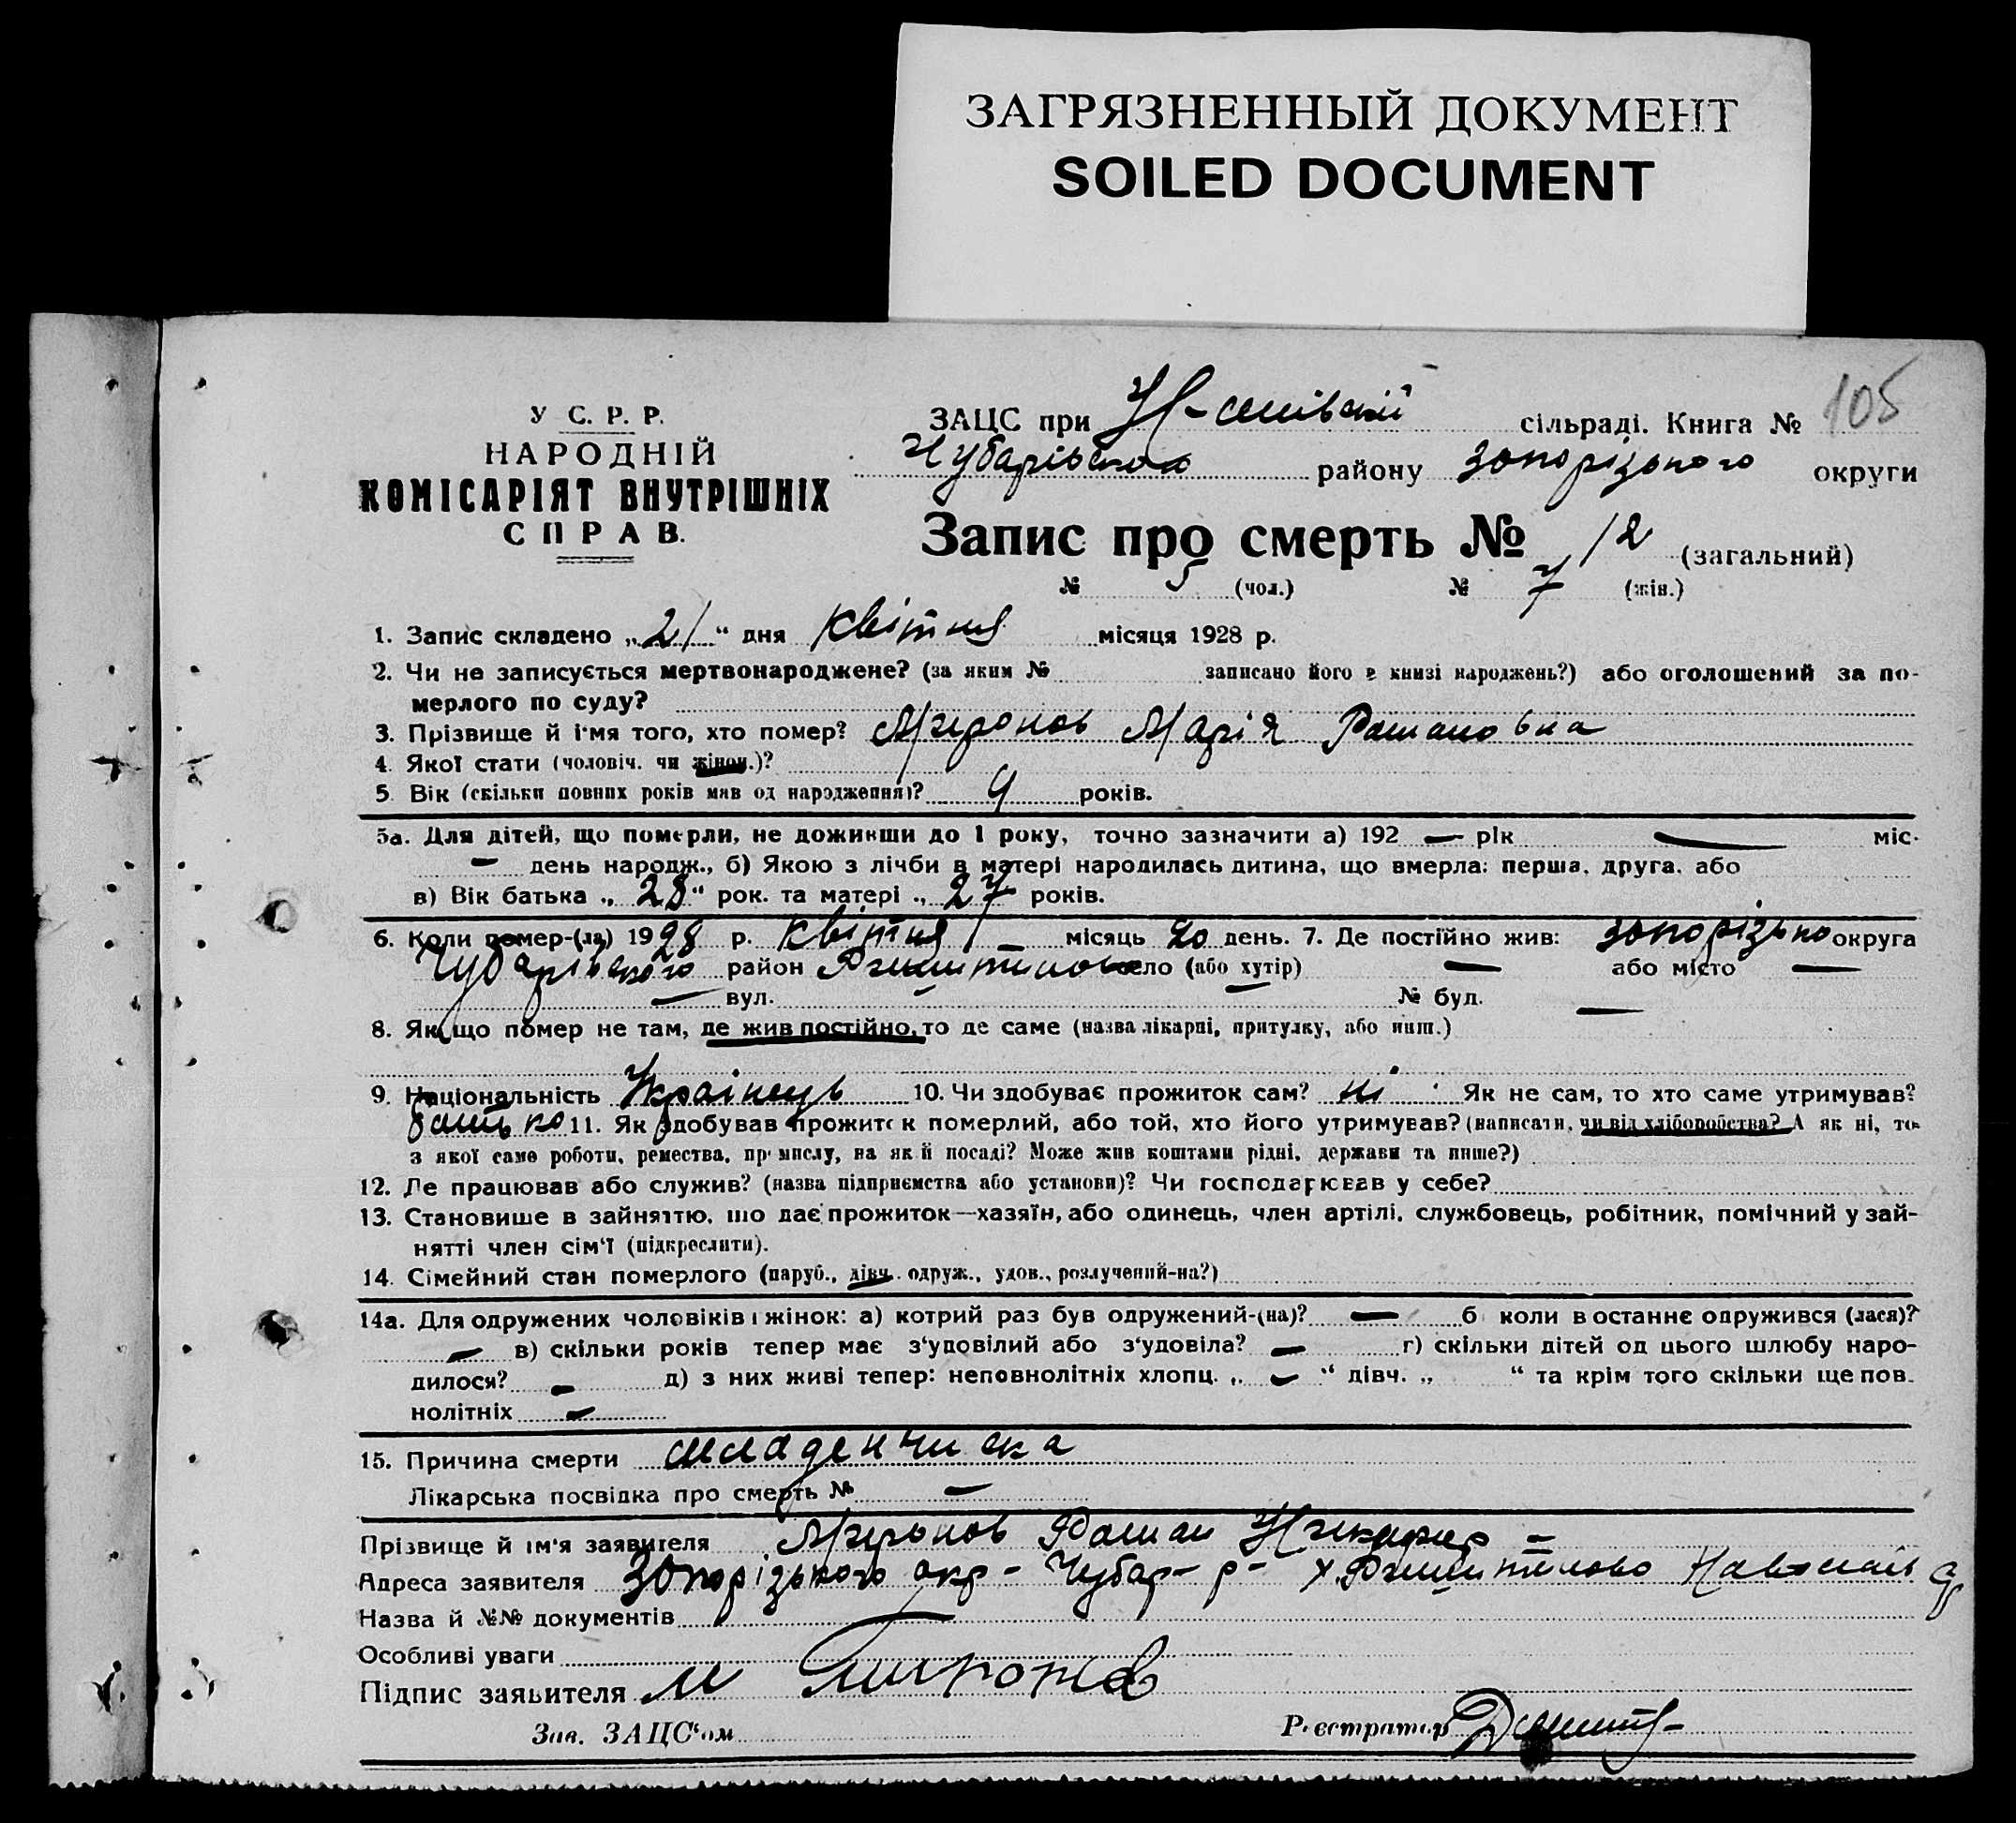 ЗАГРЯЗНЕННЫЙ ДОКУМЕНТ
SOILED DOCUMENT
105
У С. Р. Р.
НАРОДНІЙ
КОМІСАРІЯТ ВНУТРІШНІХ
СПРАВ.
ЗАЦС при сільраді. Книга №
Чубарівського району Запорізького округи
Запис про смерть № 12 (загальний)
№ 5 (чол.) № 7 (жін.)
1. Запис складено „21“ дня квітня місяця 1928 р.
2. Чи не записується мертвонароджене? (за яким № записано його в книзі народжень?) або оголошений за по-
мерлого по суду?
3. Прізвище й і'мя того, хто помер? Миронов Марія Романовна
4. Якої стати (чоловіч. чи жіноч.)?
5. Вік (скільки повних років мав од народження)? 4 років.
5а. Для дітей, що померли, не доживши до 1 року, точно зазначити а) 192 — рік — міс.
— день народж., б) Якою з лічби в матері народилась дитина, що вмерла: перша, друга, або
в) Вік батька „28“ рок. та матері „27 років.
6. Коли помер-(ла) 1928 р. квітня — місяць 20 день. 7. Де постійно жив: Запорізько округа
Чубарівського район село (або хутір) — або місто —
— вул. — № буд. —
8. Якщо помер не там, де жив постійно, то де саме (назва лікарні, притулку, або инш.)
9. Національність Українець 10. Чи здобуває прожиток сам? ні Як не сам, то хто саме утримував?
батько 11. Як здобував прожиток померлий, або той, хто його утримував? (написати, чи від хліборобства? А як ні, то
з якої саме роботи, ремества, промислу, на якій посаді? Може жив коштами рідні, держави та инше?)
12. Де працював або служив? (назва підприємства або установи)? Чи господарював у себе?
13. Становище в зайняттю, що дає прожиток—хазяїн, або одинець, член артілі, службовець, робітник, помічний у зай-
нятті член сім'ї (підкреслити).
14. Сімейний стан померлого (паруб., дівч. одруж., удов., розлучений-на?)
14а. Для одружених чоловіків і жінок: а) котрий раз був одружений-(на)? — б коли востаннє одружився (лася)?
— в) скільки років тепер має з'удовілий або з'удовіла? — г) скільки дітей од цього шлюбу наро-
дилося? — д) з них живі тепер: неповнолітніх хлопц. „ — “ дівч. „ “ та крім того скільки ще пов-
нолітніх —
15. Причина смерти младенчиска
Лікарська посвідка про смерть № —
Прізвище й ім'я заявителя Миронов Роман
Адреса заявителя Запорізького окр- Чубар- р- х.
Назва й №№ документів —
Особливі уваги
Підпис заявителя М Миронов
Зав. ЗАЦС'ом Реєстратор